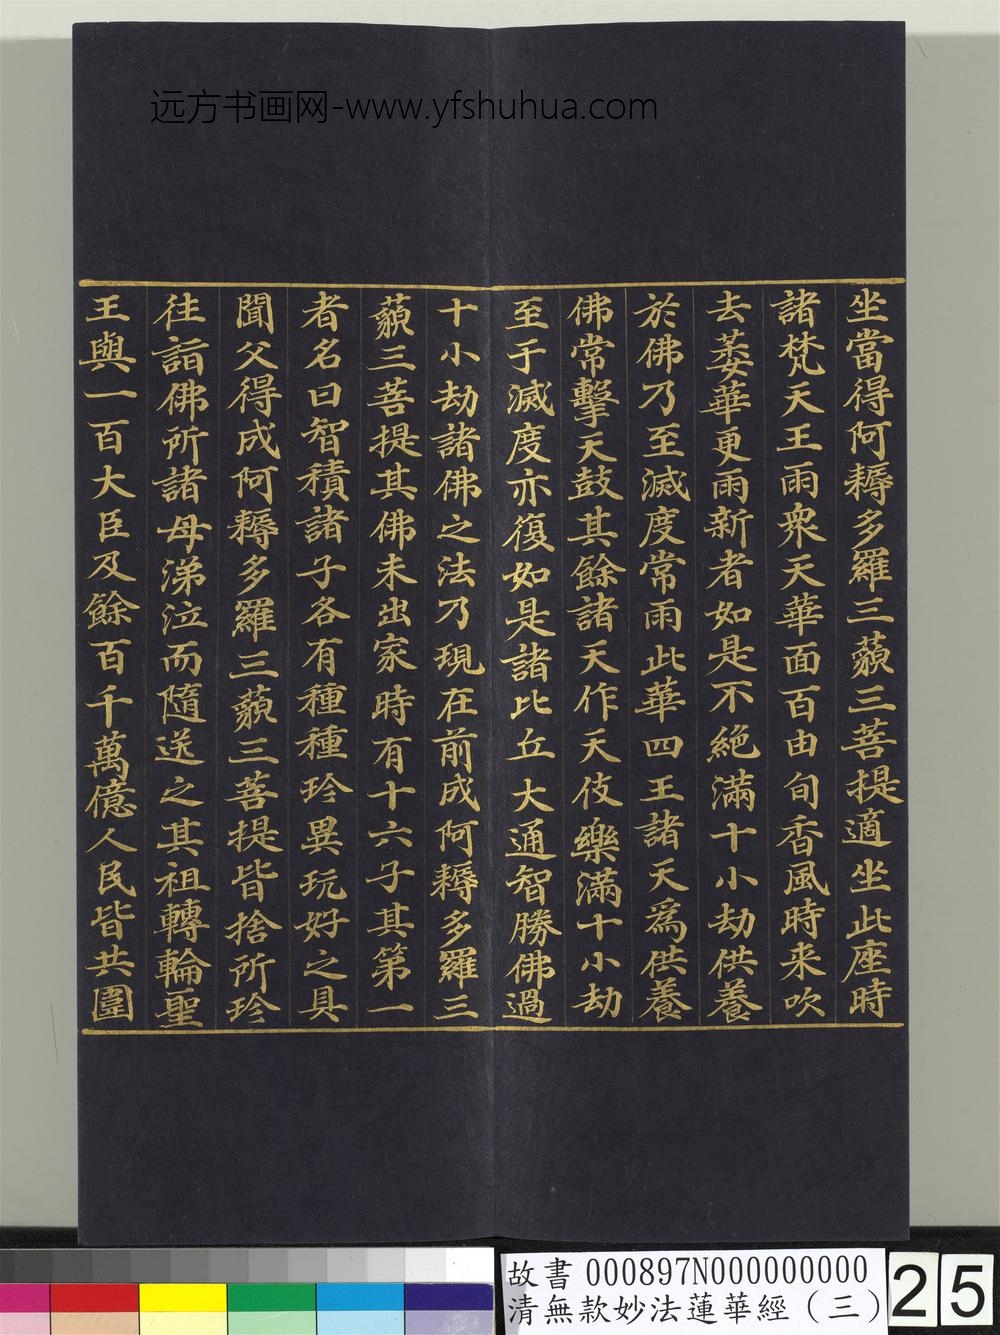 远方书画网-www.yfshuhua.com
坐當得阿耨多羅三藐三菩提適坐此座時
諸梵天王雨衆天華面百由旬香風時来吹
去萎華更雨新者如是不絶滿十小劫供養
於佛乃至滅度常雨此華四王諸天爲供養
佛常擊天鼓其餘諸天作天伎樂滿十小劫
至于滅度亦復如是諸比丘大通智勝佛過
十小劫諸佛之法乃現在前成阿耨多羅三
藐三菩提其佛未出家時有十六子其第一
者名曰智積諸子各有種種珍異玩好之具
聞父得成阿耨多羅三藐三菩提皆捨所珍
往詣佛所諸母涕泣而隨送之其祖轉輪聖
王與一百大臣及餘百千萬億人民皆共圍
故書 000897N000000000
清無款妙法蓮華經（三）
25